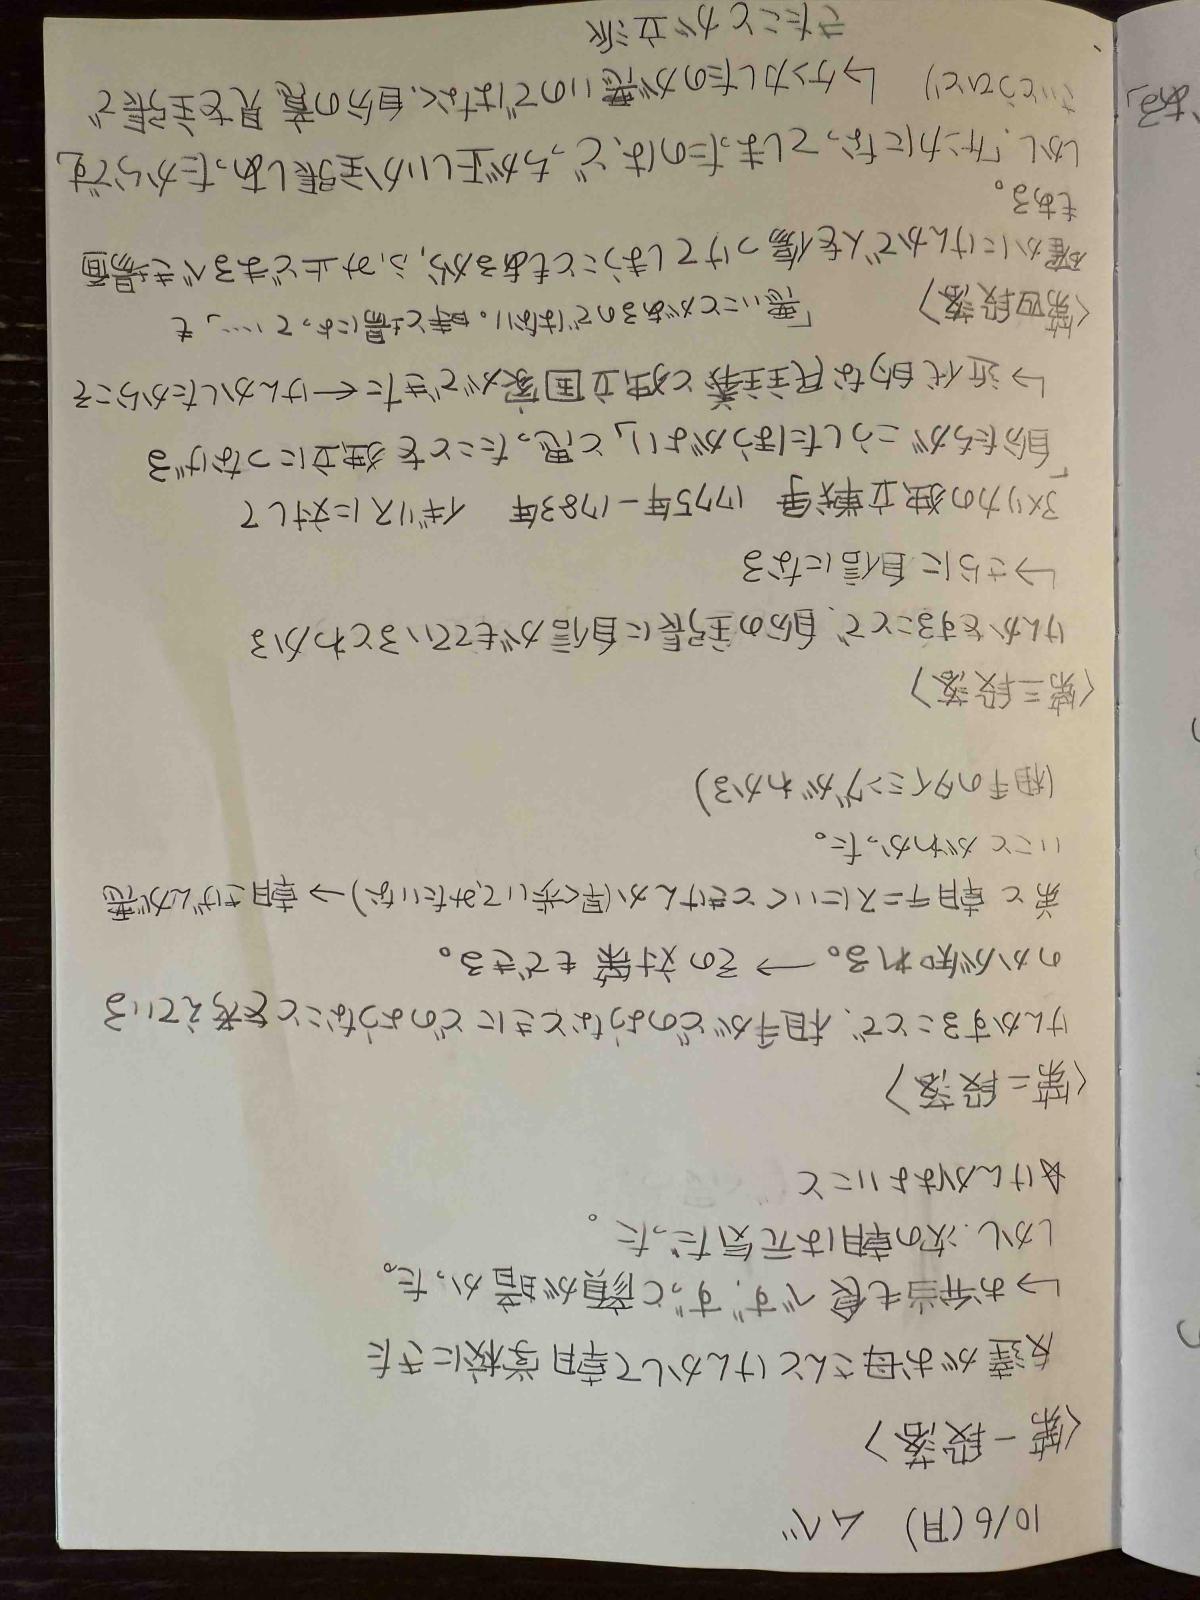 10/6(月) ムベ
〈第一段落〉
友達がお母さんとけんかして朝学校にきた
↳お弁当も食べず、ずっと顔が暗かった。
しかし、次の朝は元気だった。
☆けんかはよいこと
〈第二段落〉
けんかすることで、相手がどのようなときにどのようなことを考えている
のかが知れる。→その対策もできる。
弟と朝テニスにいくときけんか(早く歩いて、みたいな)→朝きげんが悪
いことがわかった。
(相手のタイミングがわかる)
〈第三段落〉
けんかをすることで、自分の主張に自信がもてているとわかる
↳さらに自信になる
アメリカの独立戦争 1775年-1783年 イギリスに対して
「自分たちがこうしたほうがよい」と思ったことを独立につなげる
↳近代的な民主主義と独立国家ができた←けんかしたからこそ
〈第四段落〉 「悪いことがあるのではない。時と場によって…」も
確かにけんかで人を傷つけてしまうこともあるから、ふみ止どまるべき場面
もある。
しかし、「ケンカになってしまったのは、どっちが正しいか主張しあったからです」
(さいとうひとり) ↳ケンカしたのが悪いのではなく、自分の意見を主張で
きたことが立派
ある」